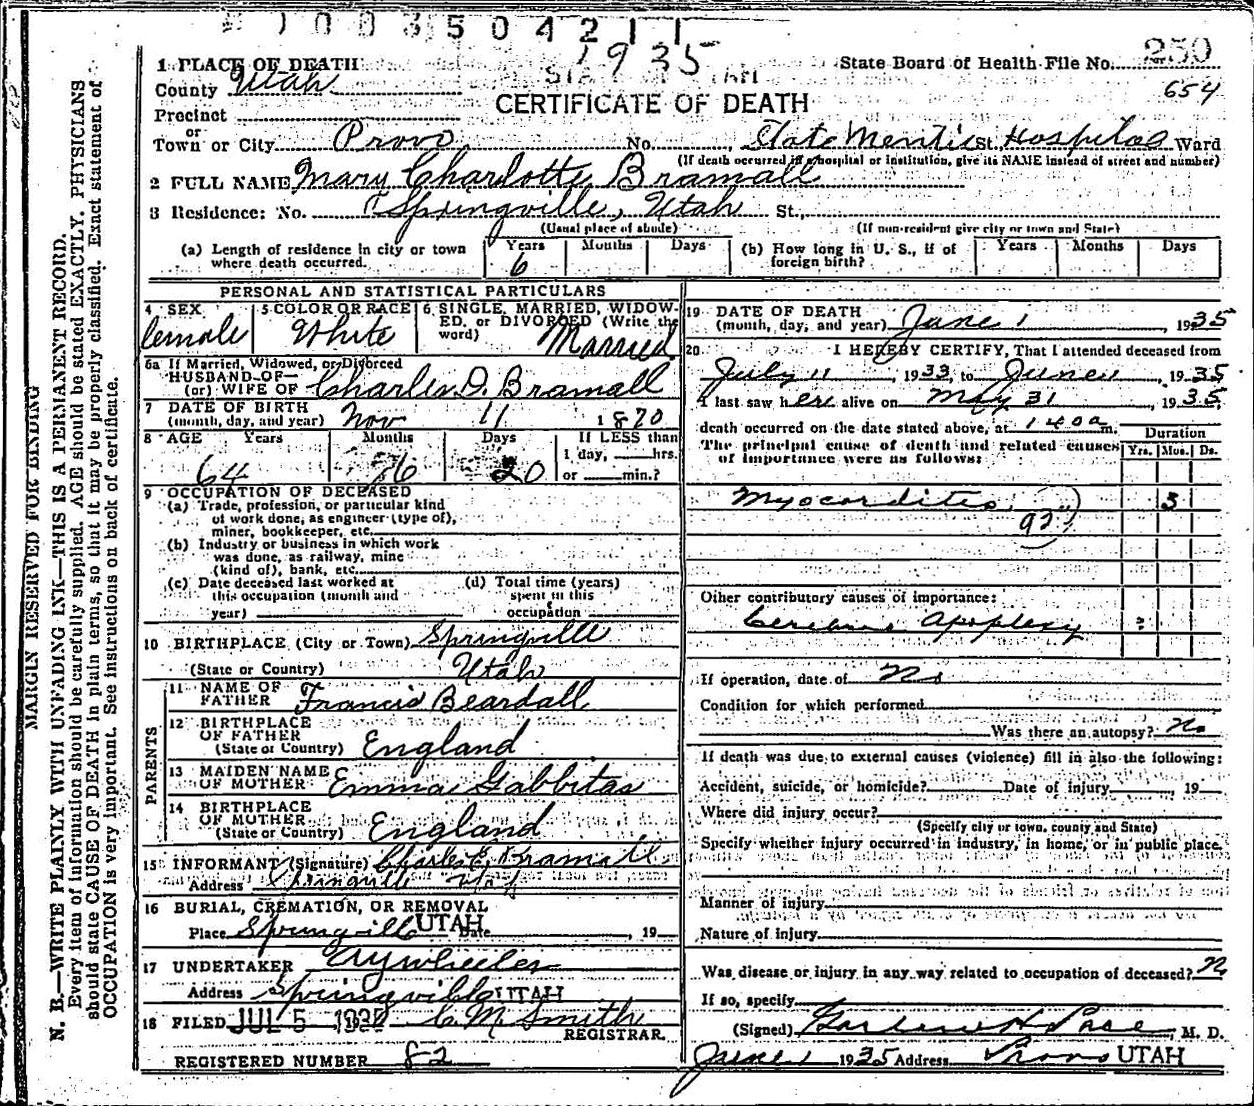 1003504211
1935
250
1 PLACE OF DEATH
State Board of Health File No.
654
County Utah
CERTIFICATE OF DEATH
Precinct
or
Town or City Provo No. State Mental St. Hospital Ward
(If death occurred in a hospital or institution, give its NAME instead of street and number)
2 FULL NAME Mary Charlotte Bramall
3 Residence: No. Springville, Utah St.,
(Usual place of abode) (If non-resident give city or town and State)
(a) Length of residence in city or town where death occurred. Years 6 Months Days
(b) How long in U. S., if of foreign birth? Years Months Days
PERSONAL AND STATISTICAL PARTICULARS
4 SEX female
5 COLOR OR RACE White
6 SINGLE, MARRIED, WIDOWED, or DIVORCED (Write the word) Married
6a If Married, Widowed, or Divorced
HUSBAND OF
(or) WIFE OF Charles D. Bramall
7 DATE OF BIRTH
(month, day, and year) Nov 11 1870
8 AGE Years 64 Months 6 Days 20
If LESS than
1 day, hrs.
or min.?
9 OCCUPATION OF DECEASED
(a) Trade, profession, or particular kind
of work done, as engineer (type of),
miner, bookkeeper, etc.
(b) Industry or business in which work
was done, as railway, mine
(kind of), bank, etc.
(c) Date deceased last worked at
this occupation (month and
year)
(d) Total time (years)
spent in this
occupation
10 BIRTHPLACE (City or Town) Springville
(State or Country) Utah
PARENTS
11 NAME OF
FATHER Francis Beardall
12 BIRTHPLACE
OF FATHER
(State or Country) England
13 MAIDEN NAME
OF MOTHER Emma Gabbitas
14 BIRTHPLACE
OF MOTHER
(State or Country) England
15 INFORMANT (Signature) Charles E. Bramall
Address Springville Utah
16 BURIAL, CREMATION, OR REMOVAL
Place Springville UTAH Date , 19
17 UNDERTAKER Wheeler
Address Springville UTAH
18 FILED JUL 5 C. M. Smith
REGISTRAR.
REGISTERED NUMBER 82
19 DATE OF DEATH
(month, day, and year) June 1, 1935
20 I HEREBY CERTIFY, That I attended deceased from
July 11, 1933, to June 1, 1935
I last saw her alive on May 31, 1935
death occurred on the date stated above, at 1 40 a m.
Duration
The principal cause of death and related causes
of importance were as follows:
Yrs. Mos. Ds.
Myocarditis 3
Other contributory causes of importance:
Cerebral Apoplexy ?
If operation, date of No
Condition for which performed
Was there an autopsy? No
If death was due to external causes (violence) fill in also the following:
Accident, suicide, or homicide? Date of injury , 19
Where did injury occur?
(Specify city or town, county and State)
Specify whether injury occurred in industry, in home, or in public place.
Manner of injury
Nature of injury
Was disease or injury in any way related to occupation of deceased? N
If so, specify
(Signed) Garland H. Pace, M. D.
June 1 1935 Address Provo UTAH
MARGIN RESERVED FOR BINDING
N. B.—WRITE PLAINLY WITH UNFADING INK—THIS IS A PERMANENT RECORD.
Every item of information should be carefully supplied. AGE should be stated EXACTLY. PHYSICIANS
should state CAUSE OF DEATH in plain terms, so that it may be properly classified. Exact statement of
OCCUPATION is very important. See instructions on back of certificate.